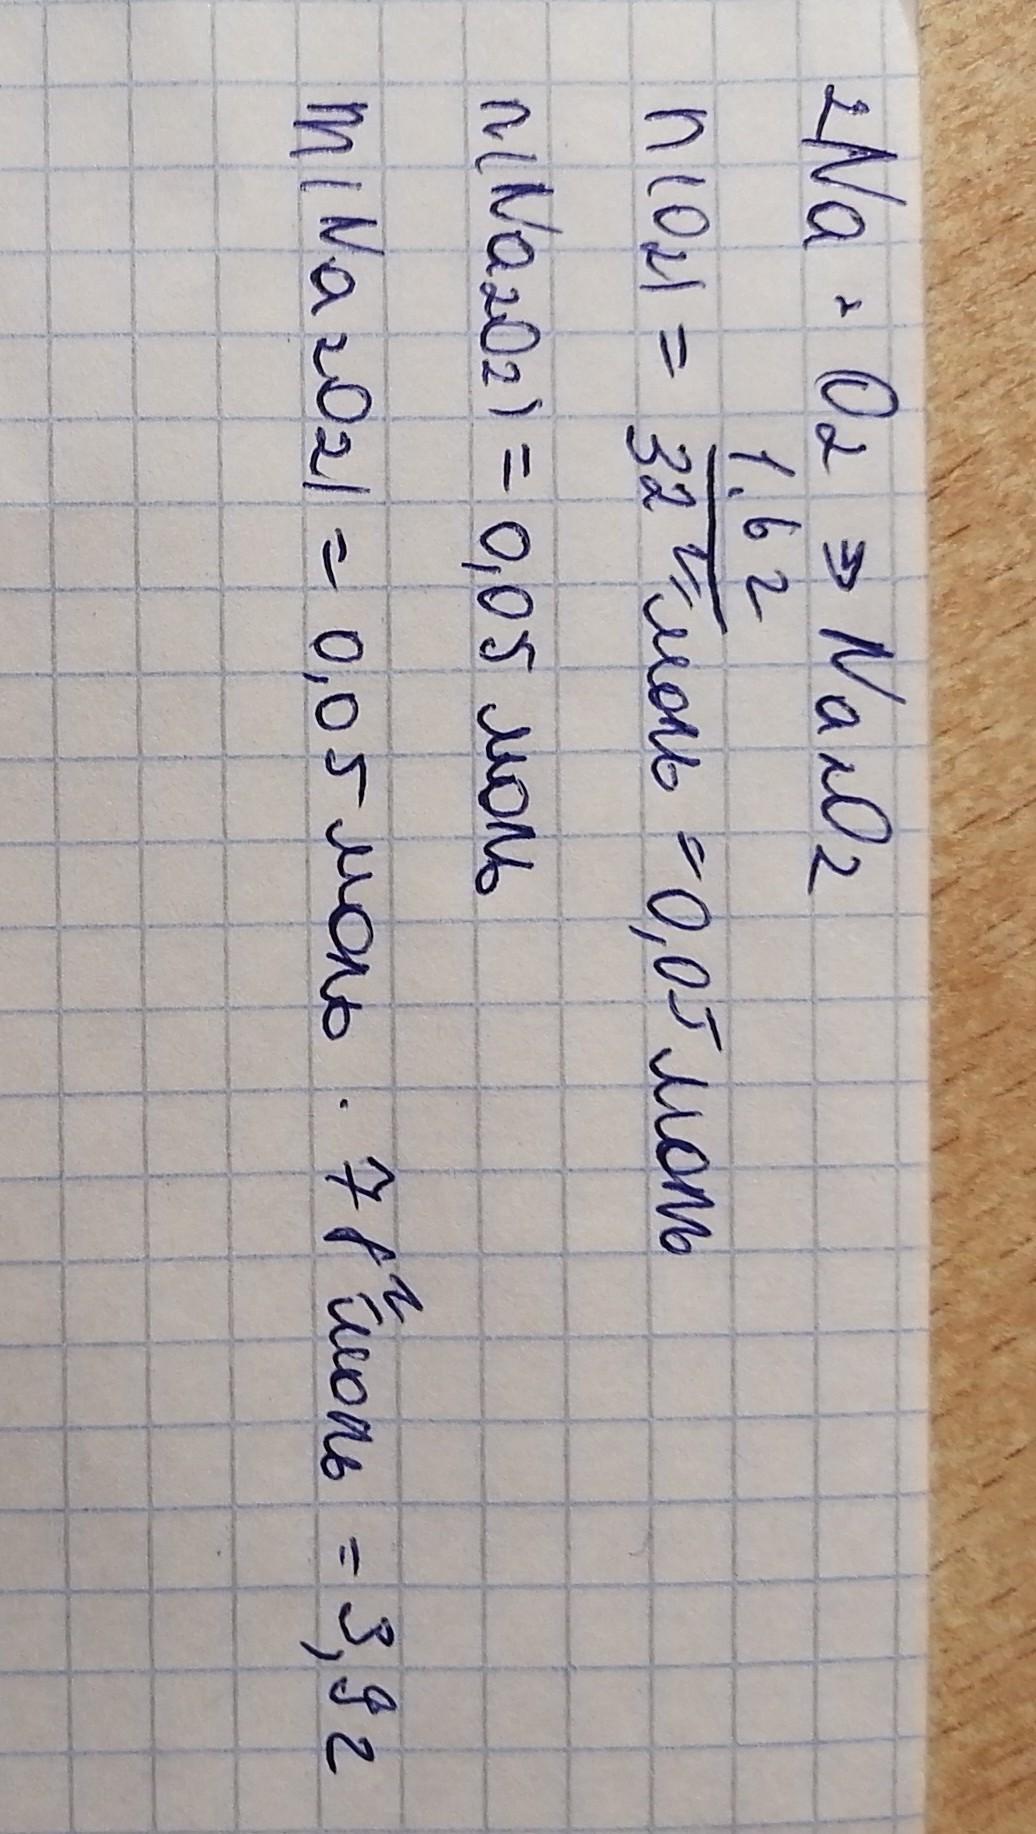 2Na + O2 → Na2O2
n(O2) = 1.6 г / 32 г/моль = 0,05 моль
n(Na2O2) = 0,05 моль
m(Na2O2) = 0,05 моль · 78 г/моль = 3,9 г